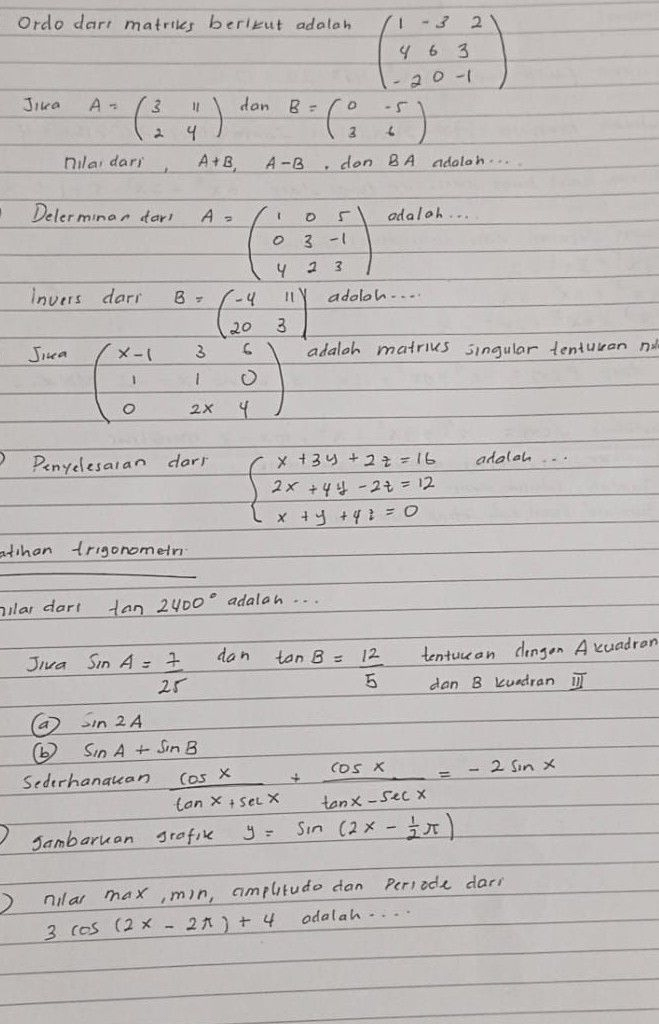 Ordo dari matriks berikut adalah (1 -3 2
4 6 3
-2 0 -1)
Jika A = (3 11 dan B = (0 -5
2 4) 3 6)
nilai dari, A+B, A-B, dan BA adalah....
Determinan dari A = (1 0 5 adalah....
0 3 -1
4 2 3)
Invers dari B = (-4 11 adalah....
20 3)
Jika (x-1 3 6 adalah matriks singular tentukan
1 1 0
0 2x 4)
Penyelesaian dari { x + 3y + 2z = 16 adalah ...
2x + 4y - 2z = 12
x + y + 4z = 0
atihan trigonometri
nilai dari tan 2400° adalah ...
Jika Sin A = 7/25 dan tan B = 12/5 tentukan dengan A kuadran
dan B kuadran III
(a) sin 2A
(b) Sin A + Sin B
Sederhanakan cos x/(tan x + sec x) + cos x/(tan x - sec x) = -2 sin x
gambarkan grafik y = sin (2x - ½π)
nilai max, min, amplitudo dan Periode dari
3 cos (2x - 2π) + 4 adalah....